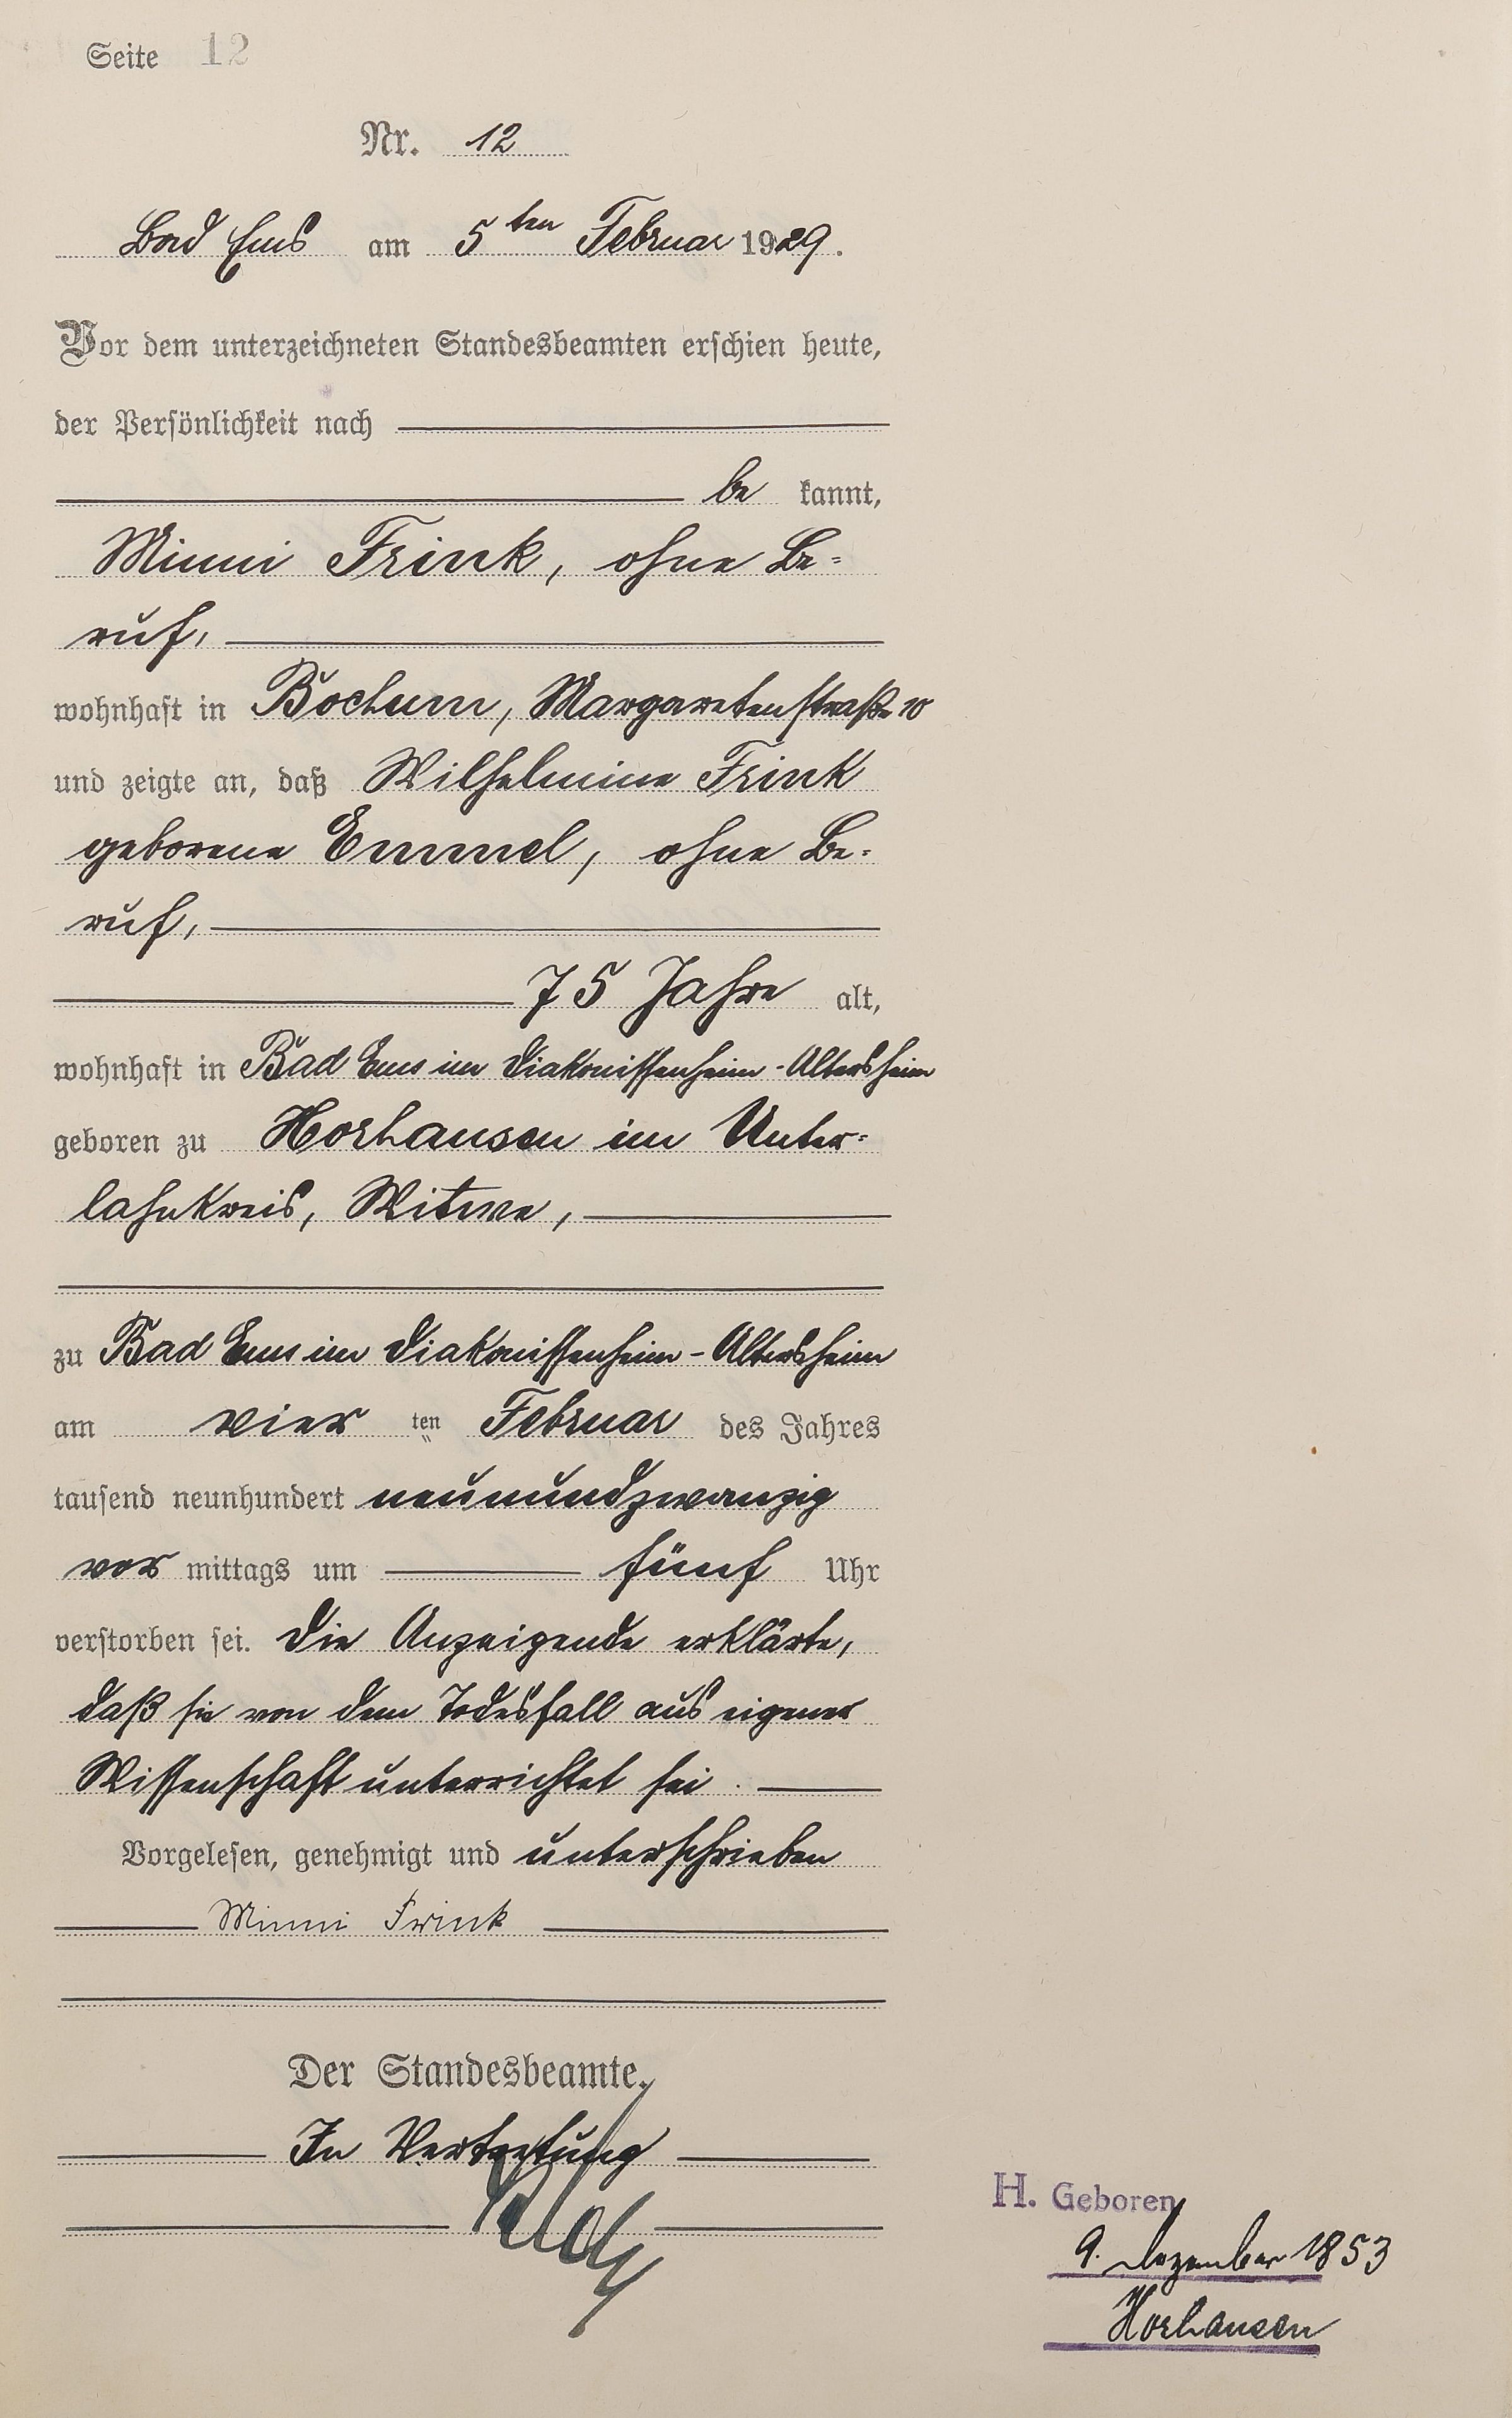 Seite 12
Nr. 12
Bad Ems am 5ten Februar 1929.
Vor dem unterzeichneten Standesbeamten erschien heute,
der Persönlichkeit nach
be kannt,
Minni Frink, ohne Be=
ruf,
wohnhaft in Bochum, Margaretenstraße 10
und zeigte an, daß Wilhelmine Frink
geborene Emmel, ohne Be=
ruf,
75 Jahre alt,
wohnhaft in Bad Ems im Diakonissenheim-Altersheim
geboren zu Horhausen im Unter=
lahnkreis, Witwe,
zu Bad Ems im Diakonissenheim-Altersheim
am vier ten Februar des Jahres
tausend neunhundert neunundzwanzig
vor mittags um fünf Uhr
verstorben sei. Die Anzeigende erklärte,
daß sie von dem Todesfall aus eigener
Wissenschaft unterrichtet sei.
Vorgelesen, genehmigt und unterschrieben
Minni Frink
Der Standesbeamte.
In Vertretung
H. Geboren
9. Dezember 1853
Horhausen